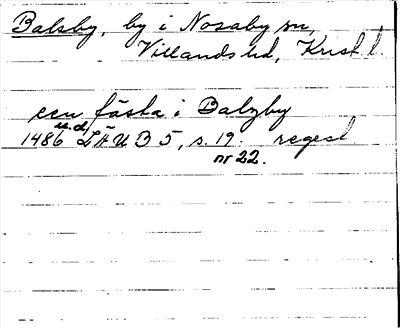 Balsby, by i Nosaby sn,
Villands hd, Krist. l.
een fästa i Balzby
1486 u.d. LÄUB 5, s. 19. regest
nr 22.